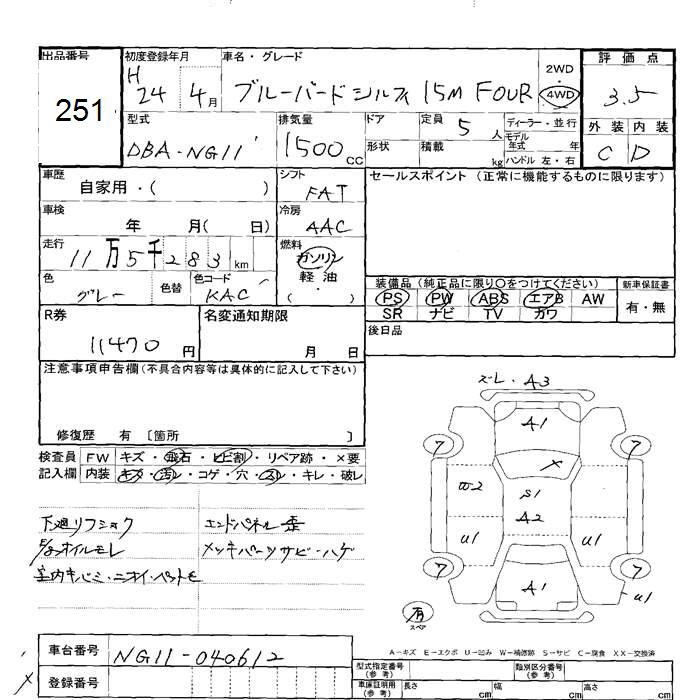 出品番号 初度登録年月 車名・グレード 2WD 評価点
251 H 24 4月 ブルーバードシルフィ 15M FOUR ・ 4WD 3.5
型式 排気量 ドア 定員 5 人 ディーラー・並行 外装 内装
DBA-NG11 1500 CC 形状 積載 kg モデル年式 年 C D
ハンドル 左・右
車歴 シフト セールスポイント (正常に機能するものに限ります)
自家用・( ) FAT
車検 冷房
年 月( 日) AAC
走行 燃料
11万5千283 km ガソリン
軽油・
( )
色 色替 色コード 装備品 (純正品に限り○をつけてください) 新車保証書
グレー KAC PS PW ABS エアB AW 有・無
SR ナビ TV カワ
R券 名変通知期限 後日品
11470 円 月 日
注意事項申告欄(不具合内容等は具体的に記入して下さい)
修復歴 有 〔箇所 〕
検査員 FW キズ・飛石・ヒビ割・リペア跡・×要
記入欄 内装 キズ・汚レ・コゲ・穴・スレ・キレ・破レ
ズレ・A3
A1
ア ア
×
W2 S1
A2
U1 U1
ア ア
A1 U1
有
スペア
下廻リフショク エンドパネル歪
オイルモレ メッキパーツサビ・ハゲ
室内キバミ・ニオイ・ペットモ
A-キズ E-エクボ U-凹み W-補修跡 S-サビ C-腐食 XX-交換済
車台番号 NG11-040612 型式指定番号(参考) 類別区分番号(参考)
登録番号 車庫証明用(参考) 長さ cm 幅 cm 高さ cm